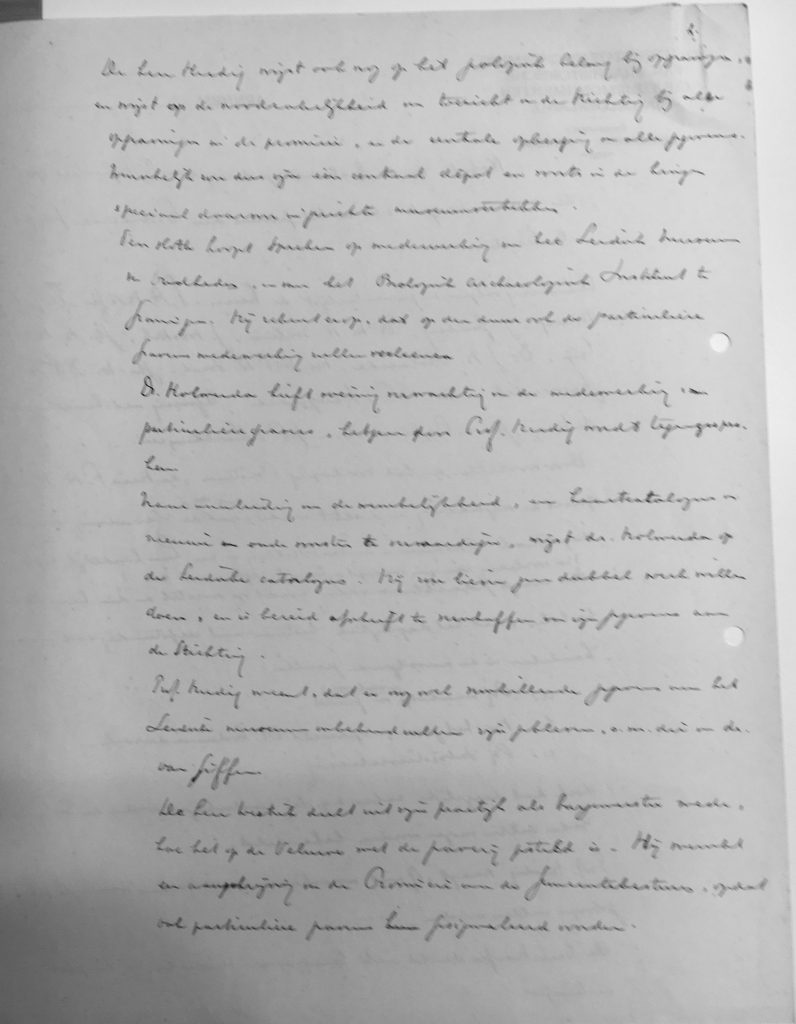 2.
De heer Heedig wijst ook nog op het geologisch belang bij opgravingen,
en wijst op de noodzakelijkheid van toezicht v. de Stichting bij alle
opgravingen in de provincie, en de centrale opberging van alle gegevens.
Wenschelijk ware dus zijn één centraal dépot en voorts in de
speciaal daarvoor ingerichte museumvertrekken.
Ten slotte hoopt Spreker op medewerking van het Leidsch Museum
v. Oudheden, en van het Biologisch Archaeologisch Instituut te
Groningen. Hij rekent erop, dat op den duur ook de particuliere
gravers medewerking zullen verleenen
Dr. Holwerda heeft weinig verwachting v. de medewerking van
particuliere gravers, hetgeen door Prof. Heedig wordt tegengespro-
ken
Naar aanleiding van de wenschelijkheid, een kaartcatalogus v.
nieuwe en oude vondsten te vervaardigen, wijst dr. Holwerda op
de Leidsche catalogus. Hij zou liever geen dubbel werk willen
doen, en is bereid afschrift te verschaffen van zijn gegevens aan
de Stichting.
Prof. Heedig meent, dat er nog wel verschillende gegevens aan het
Leidsche museum onbekend zullen zijn gebleven, o.m. die van dr.
van Giffen
De heer deelt uit zijn practijk als burgemeester mede,
hoe het op de Veluwe met de graverij gesteld is. Hij wenscht
een aanschrijving van de Provincie aan de Gemeentebesturen, opdat
ook particuliere gravers gesignaleerd worden.